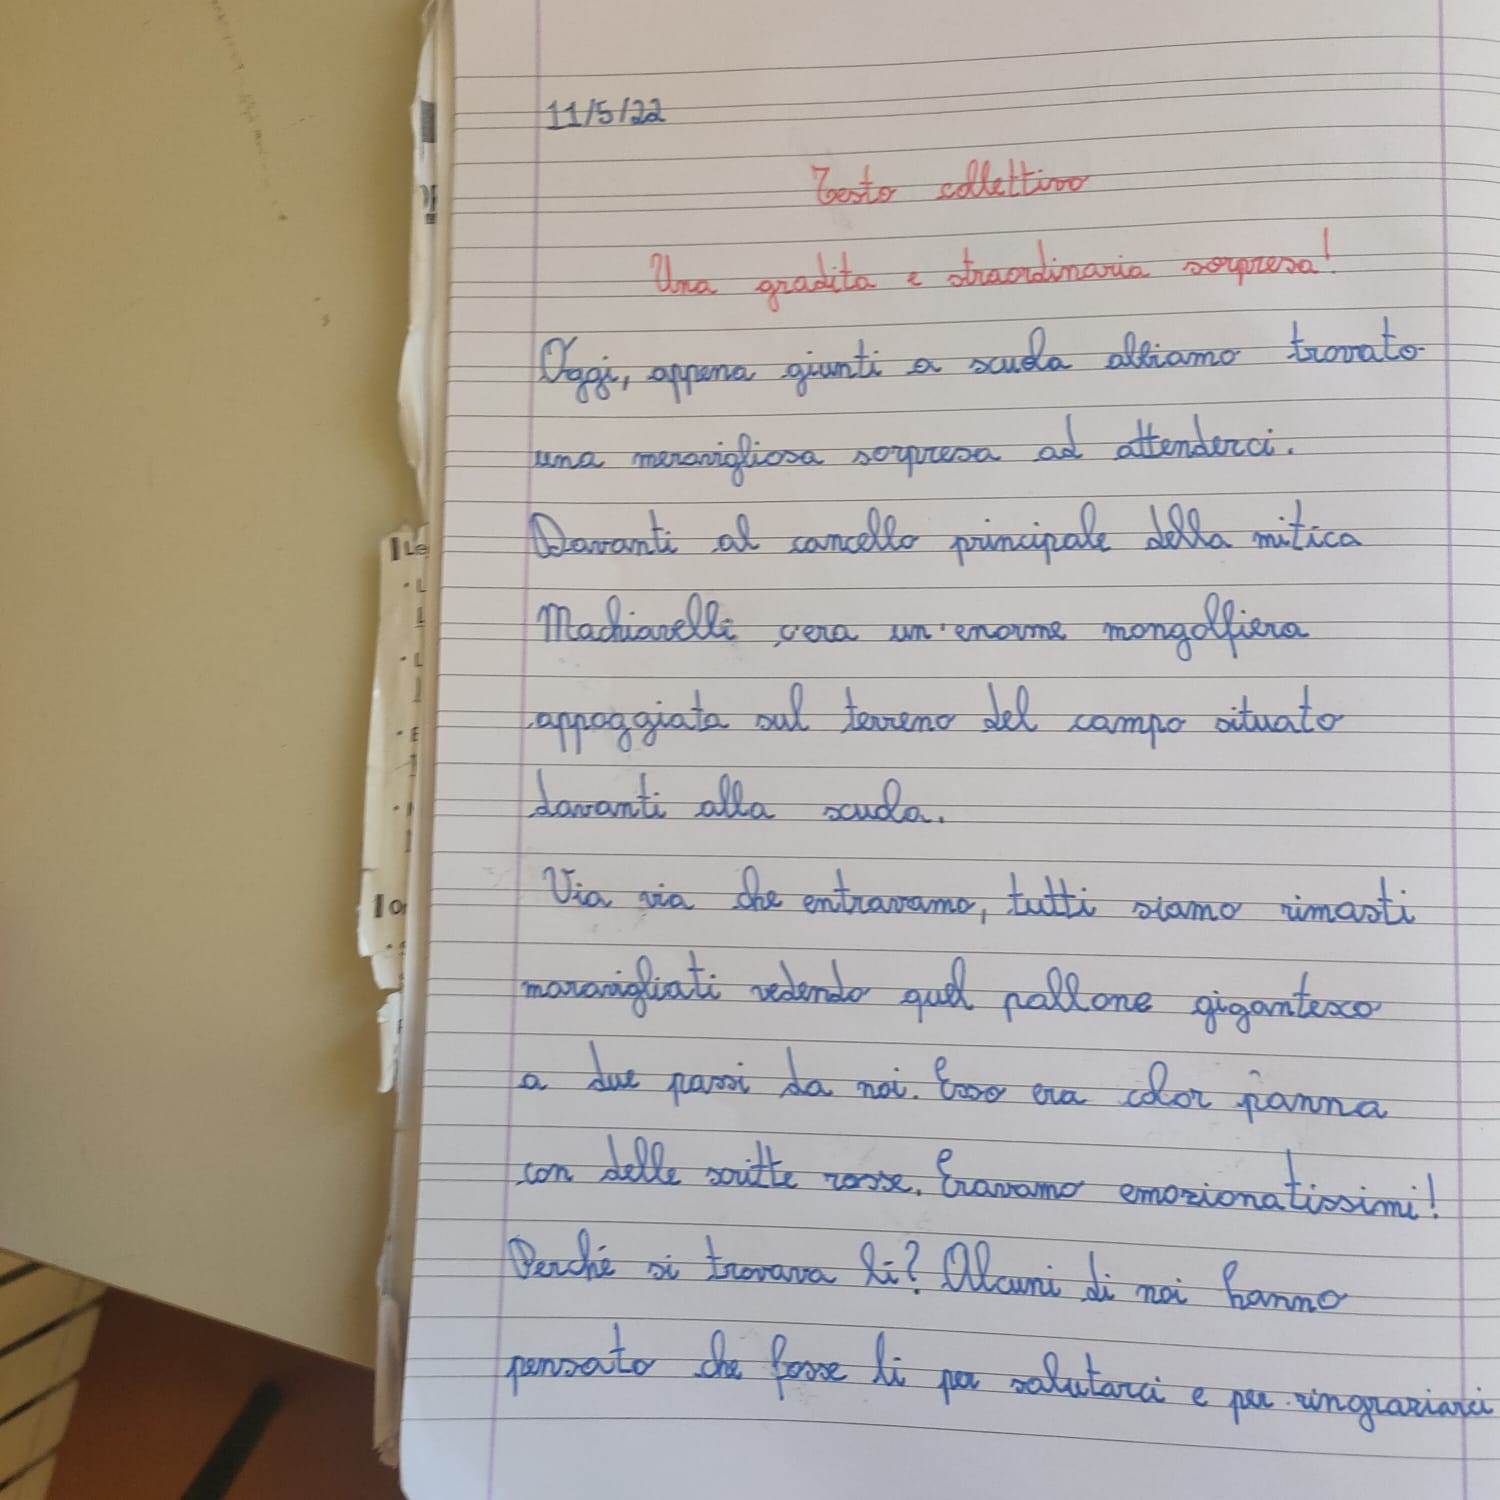 11/5/22
Testo collettivo
Una gradita e straordinaria sorpresa!
Oggi, appena giunti a scuola abbiamo trovato
una meravigliosa sorpresa ad attenderci.
Davanti al cancello principale della mitica
Machiavelli c'era un'enorme mongolfiera
appoggiata sul terreno del campo situato
davanti alla scuola.
Via via che entravamo, tutti siamo rimasti
maravigliati vedendo quel pallone gigantesco
a due passi da noi. Esso era color panna
con delle scritte rosse. Eravamo emozionatissimi!
Perché si trovava lì? Alcuni di noi hanno
pensato che fosse lì per salutarci e per ringraziarci